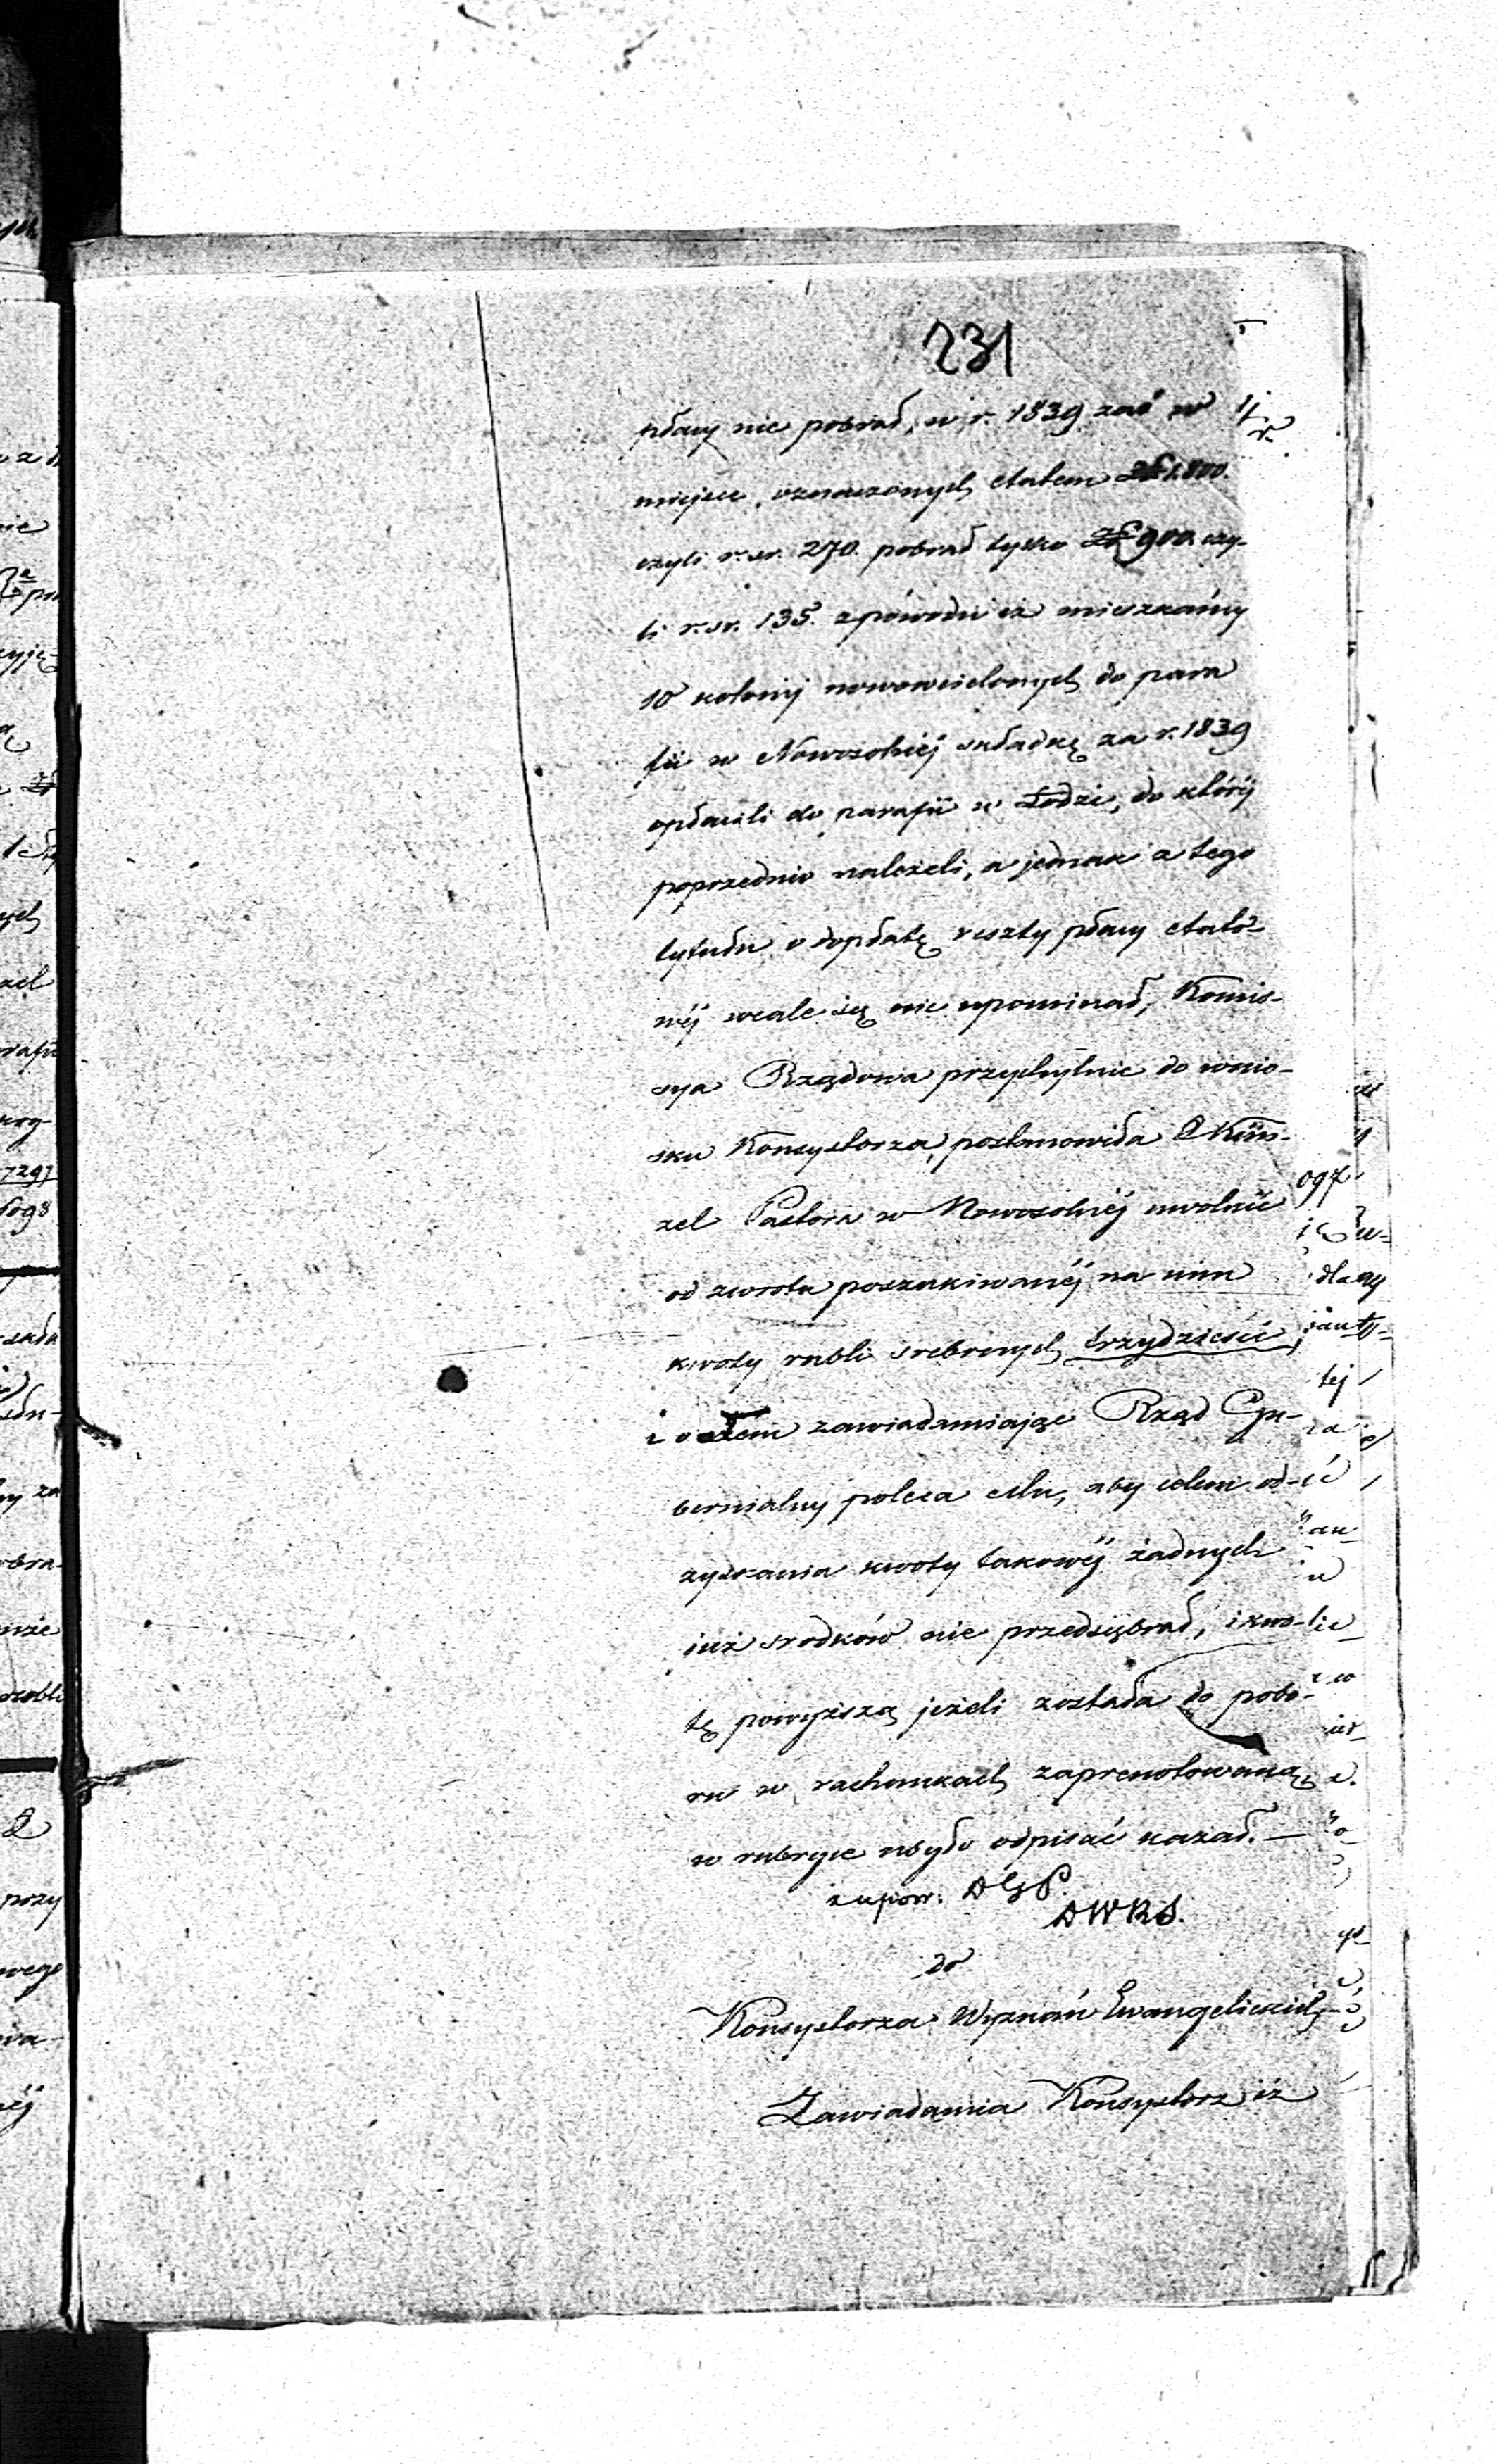 231
płacy nie pobrał, w r. 1839 zaś w
miejsce oznaczonych etatem Zł 1.800.
czyli r. sr. 270. pobrał tylko Zł 900. czy-
li r. sr. 135. z powodu iż mieszkańcy
10 kolonij nowowcielonych do para
fii w Nowosolnéj składkę za r. 1839
opłacili do parafii w Łodzi, do któréj
poprzednio należeli, a jednak z tego
tytułu o dopłatę reszty płacy etato-
wéj wcale się nie upominał, Komis-
sya Rządowa przychylnie do wnio-
sku Konsystorza, postanowiła X Kün-
zel Pastora w Nowosolnéj uwolnić
od zwrotu poszukiwanéj na nim
kwoty rubli srebrnych trzydzieści,
i o tem zawiadamiając Rząd Gu-
bernialny poleca mu, aby celem od-
zyskania kwoty takowéj żadnych
już srodków nie przedsiębrał, i kwo-
tę powyższą jeżeli została do pobo-
ru w rachunkach zaprenotowaną,
w rubryce ubyło odpisać kazał. —
z upow. DGP.
DWRS.
do
Konsystorza Wyznań Ewangelickich
Zawiadamia Konsystorz iż